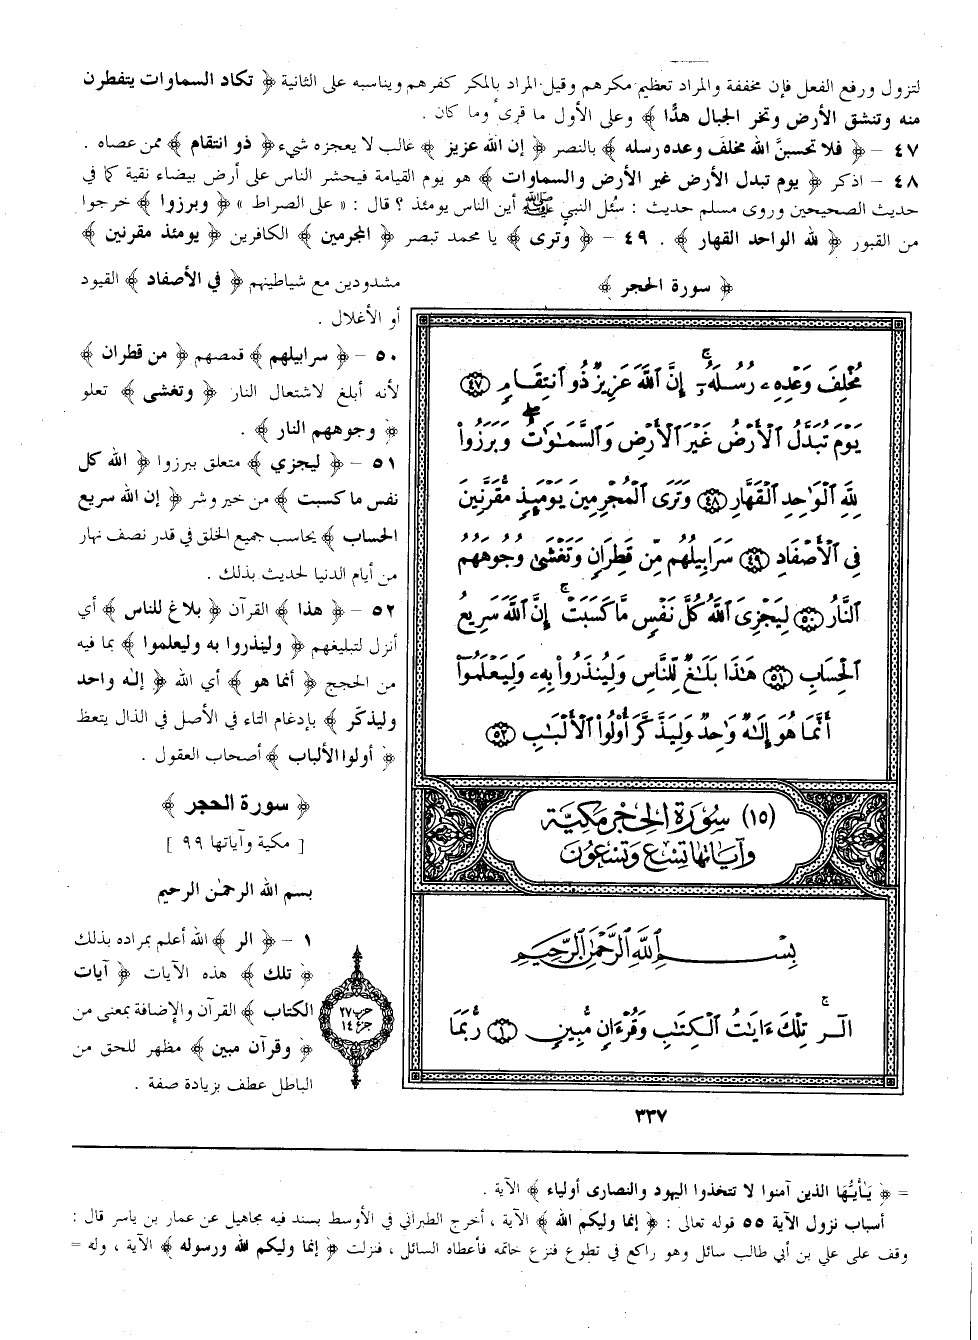 لتزول ورفع الفعل فإن مخففة والمراد تعظيم مكرهم وقيل المراد بالمكر كفرهم ويناسبه على الثانية ﴿ تكاد السماوات يتفطرن
منه وتنشق الأرض وتخر الجبال هدًّا ﴾ وعلى الأول ما قرىء وما كان .
٤٧ – ﴿ فلا تحسبنَّ الله مخلف وعده رسله ﴾ بالنصر ﴿ إن الله عزيز ﴾ غالب لا يعجزه شيء ﴿ ذو انتقام ﴾ ممن عصاه .
٤٨ – اذكر ﴿ يوم تبدل الأرض غير الأرض والسماوات ﴾ هو يوم القيامة فيحشر الناس على أرض بيضاء نقية كما في
حديث الصحيحين وروى مسلم حديث : سُئل النبي ﷺ أين الناس يومئذ ؟ قال : « على الصراط » ﴿ وبرزوا ﴾ خرجوا
من القبور ﴿ لله الواحد القهار ﴾ . ٤٩ – ﴿ وترى ﴾ يا محمد تبصر ﴿ المجرمين ﴾ الكافرين ﴿ يومئذ مقرنين ﴾
﴿ سورة الحجر ﴾
مُخْلِفَ وَعْدِهِۦ رُسُلَهُۥٓ ۚ إِنَّ ٱللَّهَ عَزِيزٌ ذُو ٱنتِقَامٍ ٤٧
يَوْمَ تُبَدَّلُ ٱلْأَرْضُ غَيْرَ ٱلْأَرْضِ وَٱلسَّمَٰوَٰتُ ۖ وَبَرَزُوا۟
لِلَّهِ ٱلْوَٰحِدِ ٱلْقَهَّارِ ٤٨ وَتَرَى ٱلْمُجْرِمِينَ يَوْمَئِذٍ مُّقَرَّنِينَ
فِى ٱلْأَصْفَادِ ٤٩ سَرَابِيلُهُم مِّن قَطِرَانٍ وَتَغْشَىٰ وُجُوهَهُمُ
ٱلنَّارُ ٥٠ لِيَجْزِىَ ٱللَّهُ كُلَّ نَفْسٍ مَّا كَسَبَتْ ۚ إِنَّ ٱللَّهَ سَرِيعُ
ٱلْحِسَابِ ٥١ هَٰذَا بَلَٰغٌ لِّلنَّاسِ وَلِيُنذَرُوا۟ بِهِۦ وَلِيَعْلَمُوٓا۟
أَنَّمَا هُوَ إِلَٰهٌ وَٰحِدٌ وَلِيَذَّكَّرَ أُو۟لُوا۟ ٱلْأَلْبَٰبِ ٥٢
(١٥) سُورَة الحِجْر مَكيَّة
وَآيَاتُهَا تِسْع وَتسْعُونَ
بِسْمِ ٱللَّهِ ٱلرَّحْمَٰنِ ٱلرَّحِيمِ
الٓر ۚ تِلْكَ ءَايَٰتُ ٱلْكِتَٰبِ وَقُرْءَانٍ مُّبِينٍ ١ رُّبَمَا
مشدودين مع شياطينهم ﴿ في الأصفاد ﴾ القيود
أو الأغلال .
٥٠ – ﴿ سرابيلهم ﴾ قمصهم ﴿ من قطران ﴾
لأنه أبلغ لاشتعال النار ﴿ وتغشى ﴾ تعلو
﴿ وجوههم النار ﴾ .
٥١ – ﴿ ليجزي ﴾ متعلق ببرزوا ﴿ الله كل
نفس ما كسبت ﴾ من خير وشر ﴿ إن الله سريع
الحساب ﴾ يحاسب جميع الخلق في قدر نصف نهار
من أيام الدنيا لحديث بذلك .
٥٢ – ﴿ هذا ﴾ القرآن ﴿ بلاغ للناس ﴾ أي
أنزل لتبليغهم ﴿ ولينذروا به وليعلموا ﴾ بما فيه
من الحجج ﴿ أنما هو ﴾ أي الله ﴿ إلٰه واحد
وليذكّر ﴾ بإدغام التاء في الأصل في الذال يتعظ
﴿ أولوا الألباب ﴾ أصحاب العقول .
﴿ سورة الحجر ﴾
[ مكية وآياتها ٩٩ ]
بسم الله الرحمٰن الرحيم
١ – ﴿ الر ﴾ الله أعلم بمراده بذلك
﴿ تلك ﴾ هذه الآيات ﴿ آيات
الكتاب ﴾ القرآن والإضافة بمعنى من
﴿ وقرآن مبين ﴾ مظهر للحق من
الباطل عطف بزيادة صفة .
حزب ٢٧
جزء ١٤
٣٣٧
= ﴿ يَـٰأيـُّها الذين آمنوا لا تتخذوا اليهود والنصارى أولياء ﴾ الآية .
أسباب نزول الآية ٥٥ قوله تعالى : ﴿ إنما وليكم الله ﴾ الآية ، أخرج الطبراني في الأوسط بسند فيه مجاهيل عن عمار بن ياسر قال :
وقف على علي بن أبي طالب سائل وهو راكع في تطوع فنزع خاتمه فأعطاه السائل ، فنزلت ﴿ إنما وليكم الله ورسوله ﴾ الآية ، وله =